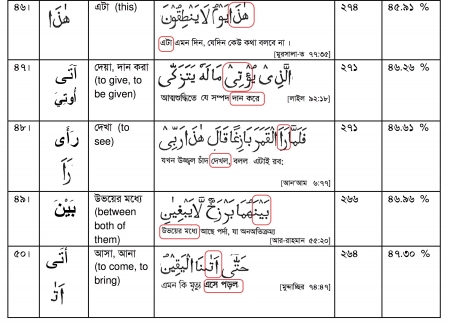 ৪৬।
هٰذَا
এটা (this)
هٰذَا يَوْمُ لَا يَنْطِقُوْنَ
এটা এমন দিন, যেদিন কেউ কথা বলবে না ।
[মুরসালা-ত ৭৭:৩৫]
২৭৪
৪৫.৯১ %
৪৭।
آتَى
أُوتِيَ
দেয়া, দান করা
(to give, to
be given)
الَّذِىْ يُؤْتِىْ مَالَهٗ يَتَزَكّٰى
আত্মশুদ্ধিতে যে সম্পদ দান করে
[লাইল ৯২:১৮]
২৭১
৪৬.২৬ %
৪৮।
رَأَى
رَاَ
দেখা (to
see)
فَلَمَّا رَاَ الْقَمَرَ بَازِغًا قَالَ هٰذَا رَبِّىْ
যখন উজ্জ্বল চাঁদ দেখল, বলল এটাই রব;
[আন'আম ৬:৭৭]
২৭১
৪৬.৬১ %
৪৯।
بَيْنَ
উভয়ের মধ্যে
(between
both of
them)
بَيْنَهُمَا بَرْزَخٌ لَّا يَبْغِيٰنِ
উভয়ের মধ্যে আছে পর্দা, যা অনতিক্রম্য
[আর-রাহমান ৫৫:২০]
২৬৬
৪৬.৯৬ %
৫০।
أَتَى
اَتٰ
আসা, আনা
(to come, to
bring)
حَتّٰى اَتٰىنَا الْيَقِيْنُ
এমন কি মৃত্যু এসে পড়ল
[মুদ্দাছ্ছির ৭৪:৪৭]
২৬৪
৪৭.৩০ %